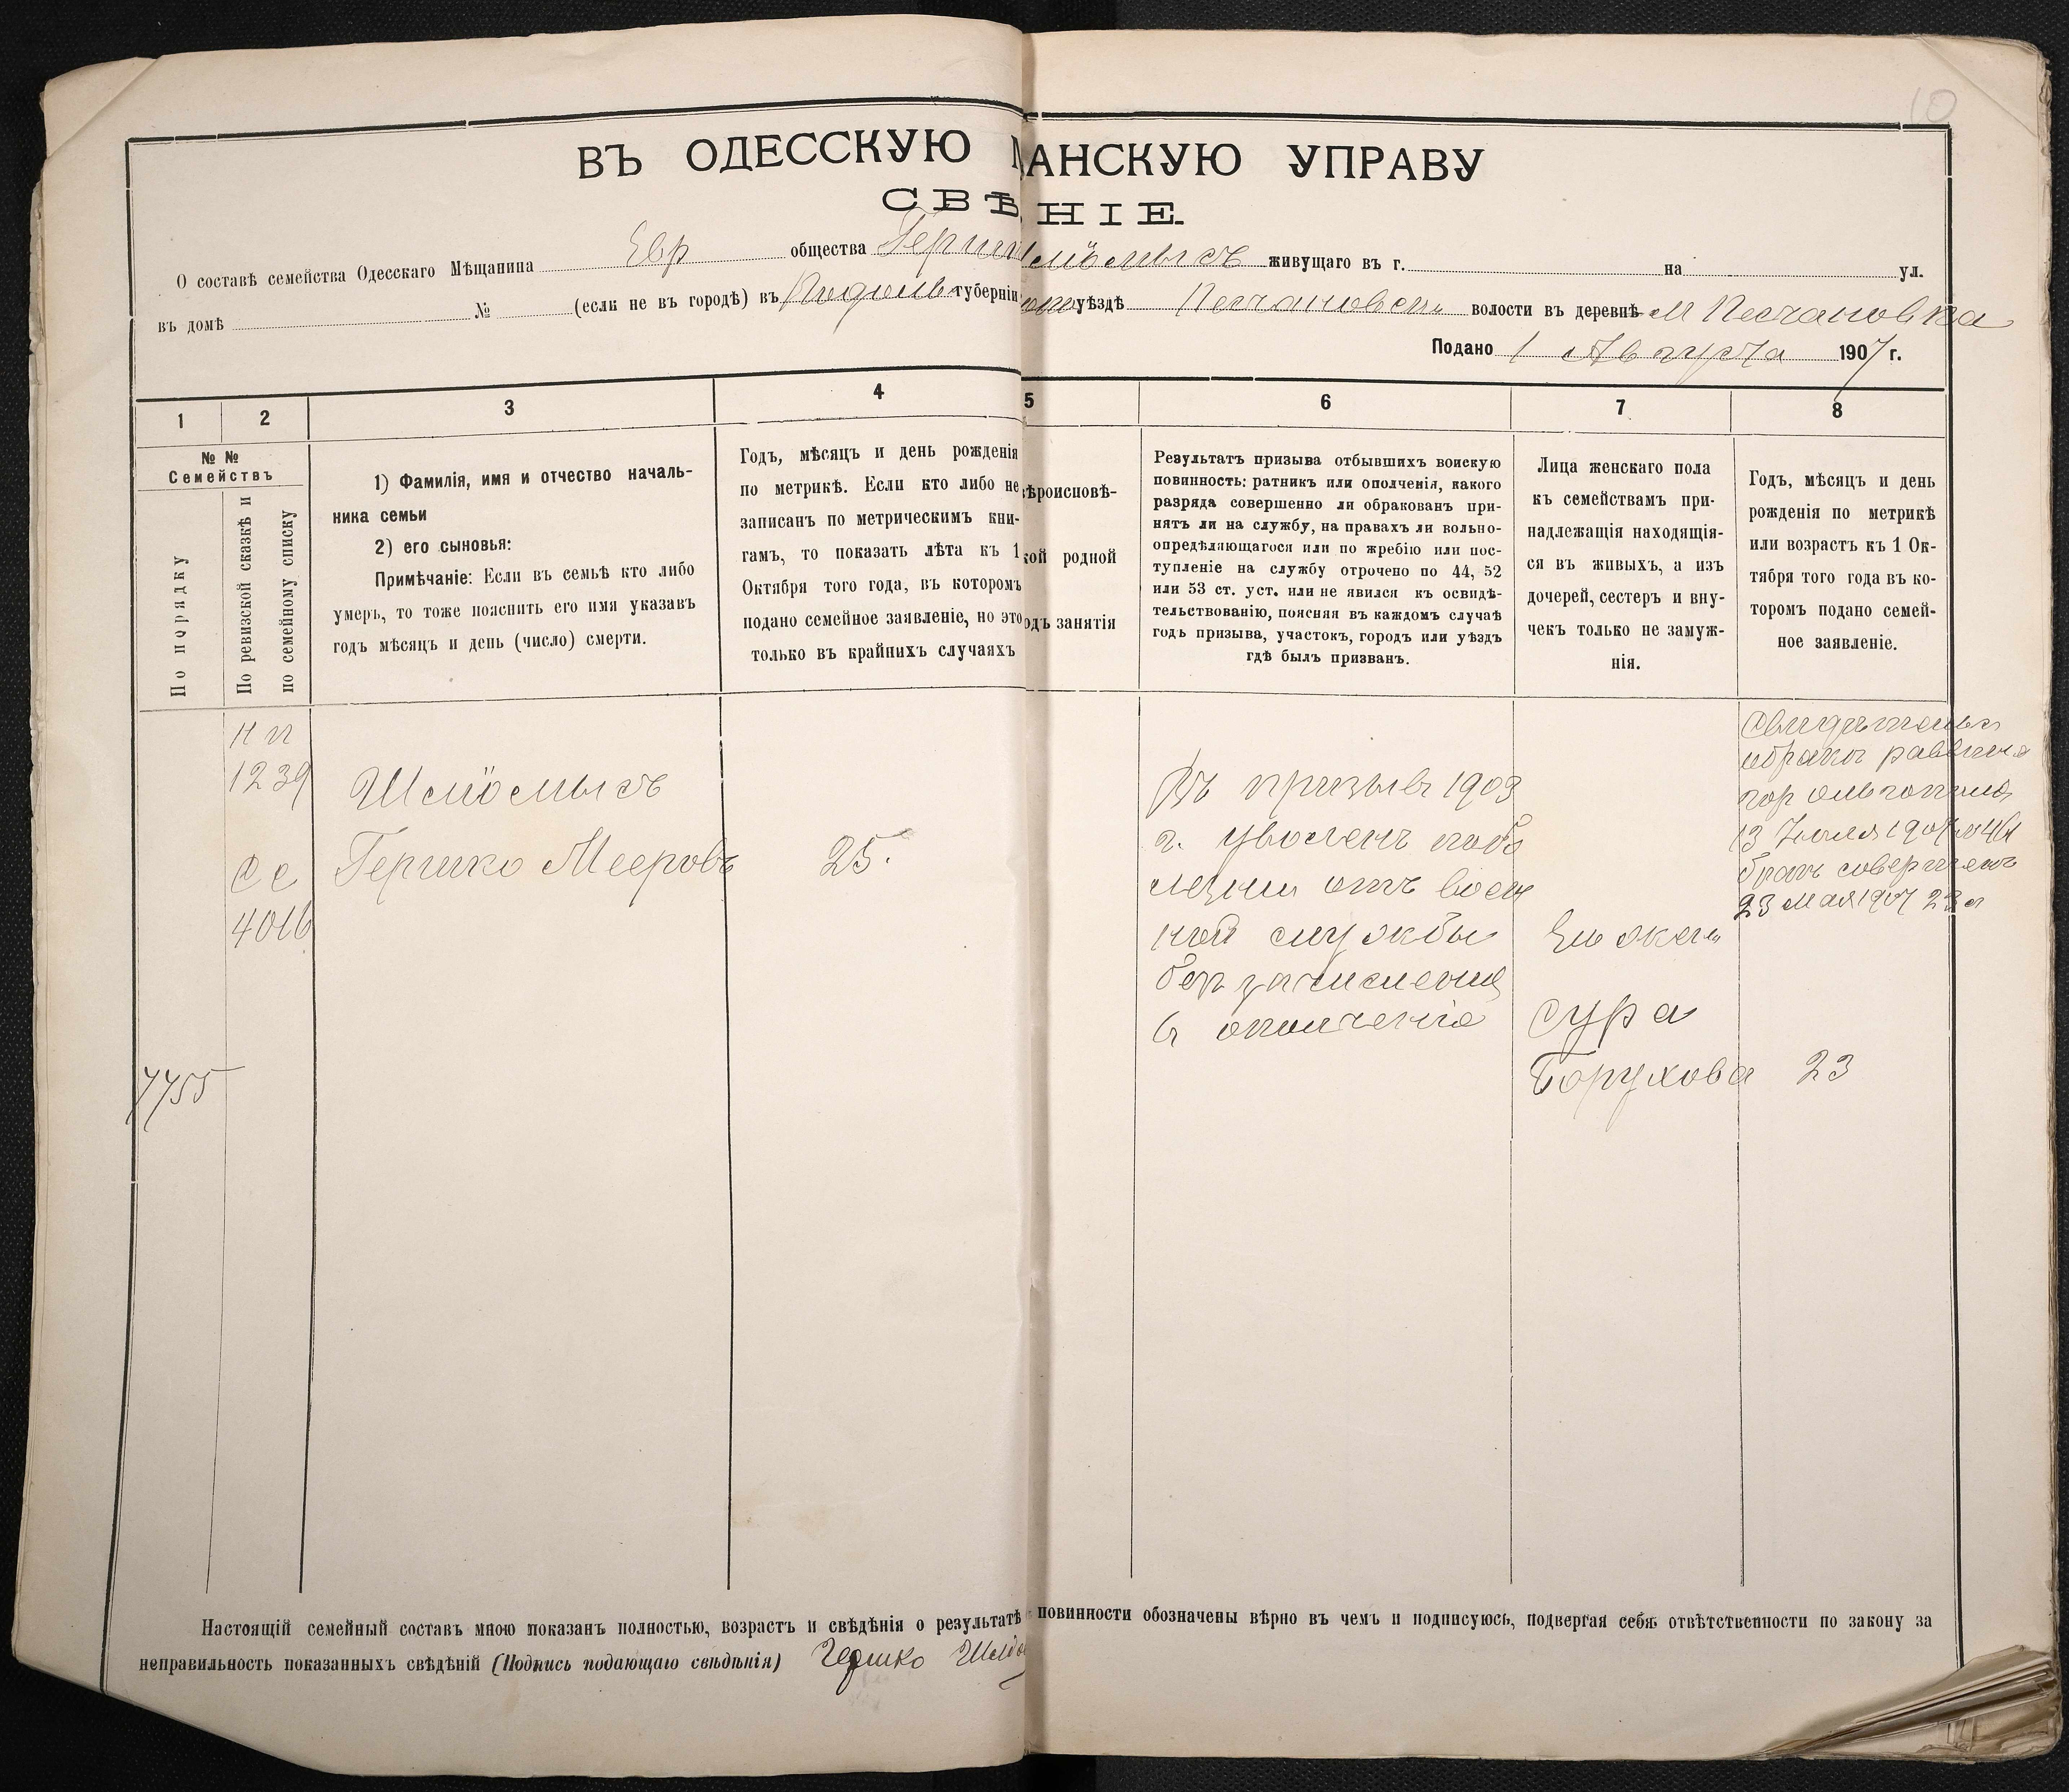 10
ВЪ ОДЕССКУЮ АНСКУЮ УПРАВУ
СВѢ НІЕ.
О составѣ семейства Одесскаго Мѣщанина Евр общества Герш Шлiомысъ живущаго въ г. на ул.
въ домѣ № (если не въ городѣ) въ Подольс губерніи уѣздѣ Песчановск волости въ деревнѣ м Песчановка
Подано 1 Августа 1907 г.
1 2 3 4 5 6 7 8
№ №
Семействъ
По порядку
По ревизской сказкѣ и
по семейному списку
1) Фамилія, имя и отчество началь-
ника семьи
2) его сыновья:
Примѣчаніе: Если въ семьѣ кто либо
умеръ, то тоже пояснить его имя указавъ
годъ мѣсяцъ и день (число) смерти.
Годъ, мѣсяцъ и день рожденія
по метрикѣ. Если кто либо не
записанъ по метрическимъ кни-
гамъ, то показать лѣта къ 1
Октября того года, въ которомъ
подано семейное заявленіе, но это
только въ крайнихъ случаяхъ
ѣроисповѣ-
кой родной
одъ занятія
Результатъ призыва отбывшихъ воискую
повинность: ратникъ или ополченія, какого
разряда совершенно ли обракованъ при-
нятъ ли на службу, на правахъ ли вольно-
опредѣляющагося или по жребію или пос-
тупленіе на службу отрочено по 44, 52
или 53 ст. уст. или не явился къ освидѣ-
тельствованію, поясняя въ каждомъ случаѣ
годъ призыва, участокъ, городъ или уѣздъ
гдѣ былъ призванъ.
Лица женскаго пола
къ семействамъ при-
надлежащія находящія-
ся въ живыхъ, а изъ
дочерей, сестеръ и вну-
чекъ только не замуж-
нія.
Годъ, мѣсяцъ и день
рожденія по метрикѣ
или возрастъ къ 1 Ок-
тября того года въ ко-
торомъ подано семей-
ное заявленіе.
Н п
1239
С с
4016
7755
Шлiомысъ
Гершко Мееровъ
25.
Въ призывъ 1903
г. уволенъ по бо
лезни отъ воен
ной службы
без зачисления
в ополчение
Его жена
Сура
Борухова
23
Свидетельс
о браке раввина
гор Ольгополя
13 Июля 1907 № 461
бракъ совершенъ
23 мая 1907 23 л
Настоящій семейный составъ мною показанъ полностью, возрастъ и свѣдѣнія о результатѣ повинности обозначены вѣрно въ чемъ и подписуюсь, подвергая себя отвѣтственности по закону за
неправильность показанныхъ свѣдѣній (Подпись подающаго свѣдѣнія) Гершко Шлио